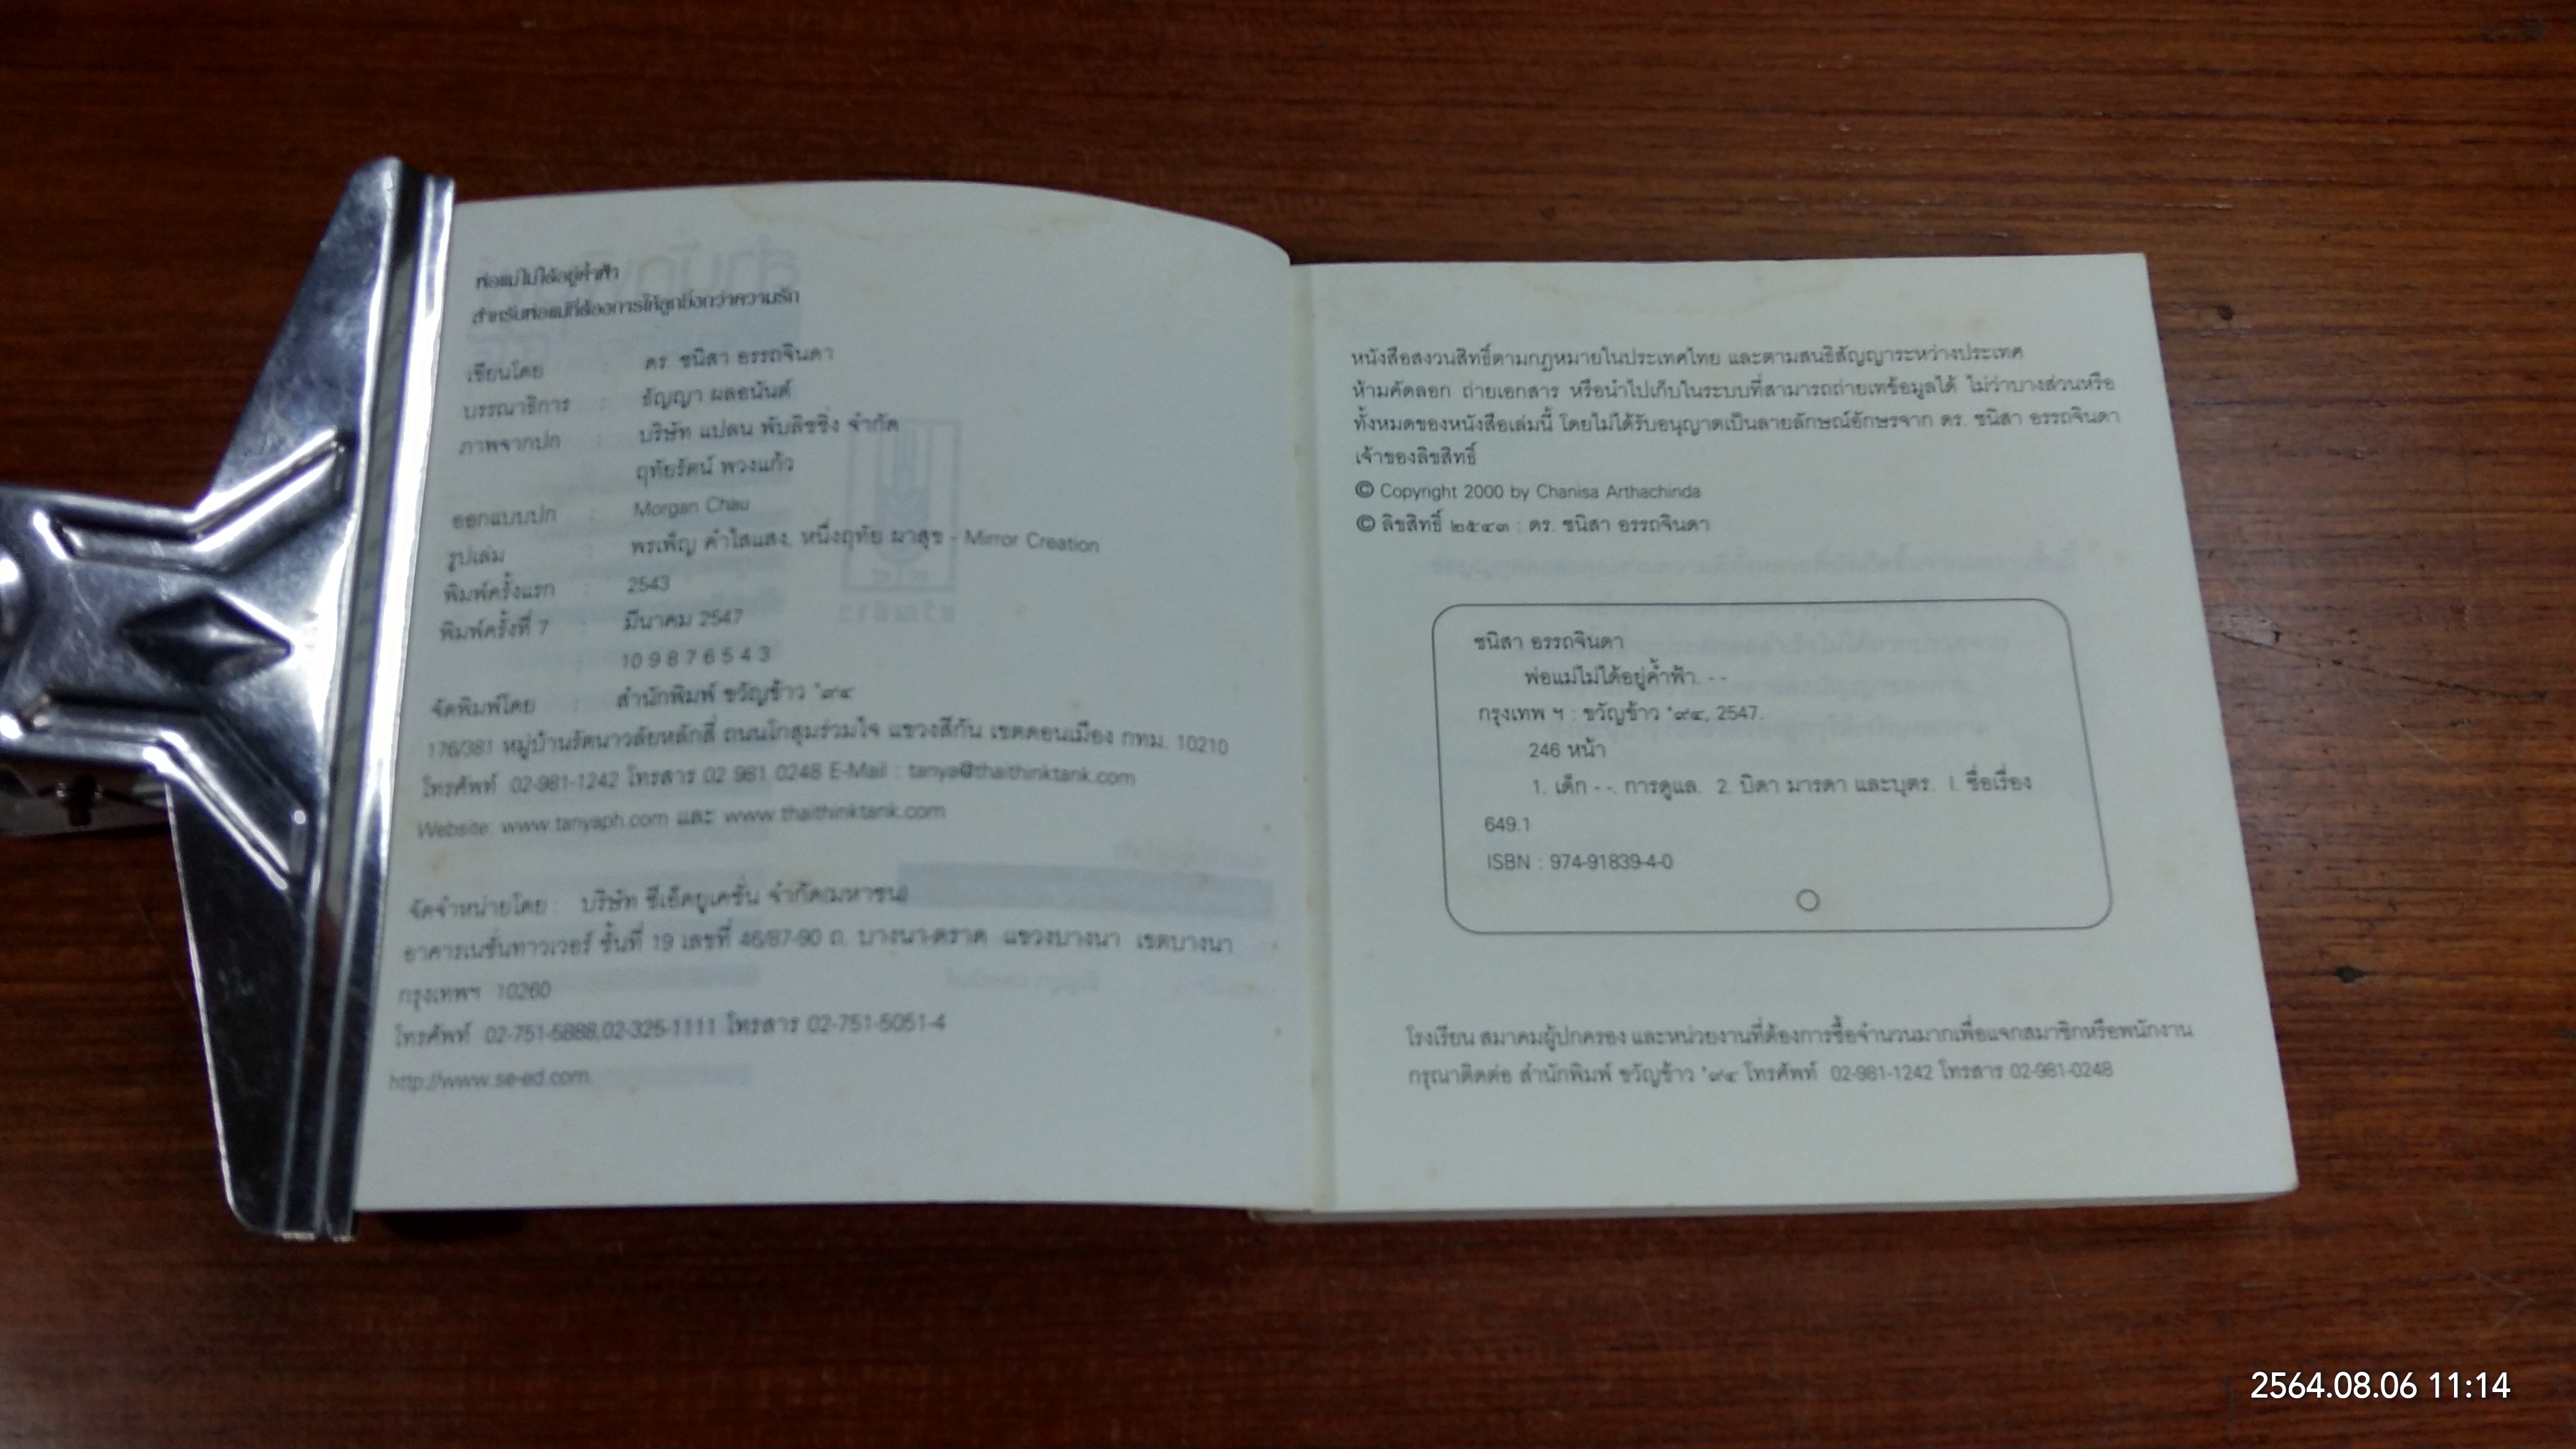 พ่อแม่ไม่ได้อยู่ค้ำฟ้า
สำหรับพ่อแม่ที่ต้องการให้ลูกยิ่งกว่าความรัก
เขียนโดย : ดร. ชนิสา อรรถจินดา
บรรณาธิการ : ธัญญา ผลอนันต์
ภาพจากปก : บริษัท แปลน พับลิชชิ่ง จำกัด
ฤทัยรัตน์ พวงแก้ว
ออกแบบปก : Morgan Chau
รูปเล่ม : พรเพ็ญ คำใสแสง, หนึ่งฤทัย ผาสุข - Mirror Creation
พิมพ์ครั้งแรก : 2543
พิมพ์ครั้งที่ 7 : มีนาคม 2547
10 9 8 7 6 5 4 3
จัดพิมพ์โดย : สำนักพิมพ์ ขวัญข้าว '๙๔
176/381 หมู่บ้านรัตนาวลัยหลักสี่ ถนนโกสุมร่วมใจ แขวงสีกัน เขตดอนเมือง กทม. 10210
โทรศัพท์ 02-981-1242 โทรสาร 02 981 0248 E-Mail : tanya@thaithinktank.com
Website: www.tanyaph.com และ www.thaithinktank.com
จัดจำหน่ายโดย : บริษัท ซีเอ็ดยูเคชั่น จำกัด(มหาชน)
อาคารเนชั่นทาวเวอร์ ชั้นที่ 19 เลขที่ 46/87-90 ถ. บางนา-ตราด แขวงบางนา เขตบางนา
กรุงเทพฯ 10260
โทรศัพท์ 02-751-5888,02-325-1111 โทรสาร 02-751-5051-4
http://www.se-ed.com
หนังสือสงวนสิทธิ์ตามกฎหมายในประเทศไทย และตามสนธิสัญญาระหว่างประเทศ
ห้ามคัดลอก ถ่ายเอกสาร หรือนำไปเก็บในระบบที่สามารถถ่ายเทข้อมูลได้ ไม่ว่าบางส่วนหรือ
ทั้งหมดของหนังสือเล่มนี้ โดยไม่ได้รับอนุญาตเป็นลายลักษณ์อักษรจาก ดร. ชนิสา อรรถจินดา
เจ้าของลิขสิทธิ์
© Copyright 2000 by Chanisa Arthachinda
© ลิขสิทธิ์ ๒๕๔๓ : ดร. ชนิสา อรรถจินดา
ชนิสา อรรถจินดา
พ่อแม่ไม่ได้อยู่ค้ำฟ้า. - -
กรุงเทพ ฯ : ขวัญข้าว '๙๔, 2547.
246 หน้า
1. เด็ก - -. การดูแล. 2. บิดา มารดา และบุตร. I. ชื่อเรื่อง
649.1
ISBN : 974-91839-4-0
โรงเรียน สมาคมผู้ปกครอง และหน่วยงานที่ต้องการซื้อจำนวนมากเพื่อแจกสมาชิกหรือพนักงาน
กรุณาติดต่อ สำนักพิมพ์ ขวัญข้าว '๙๔ โทรศัพท์ 02-981-1242 โทรสาร 02-981-0248
2564.08.06 11:14